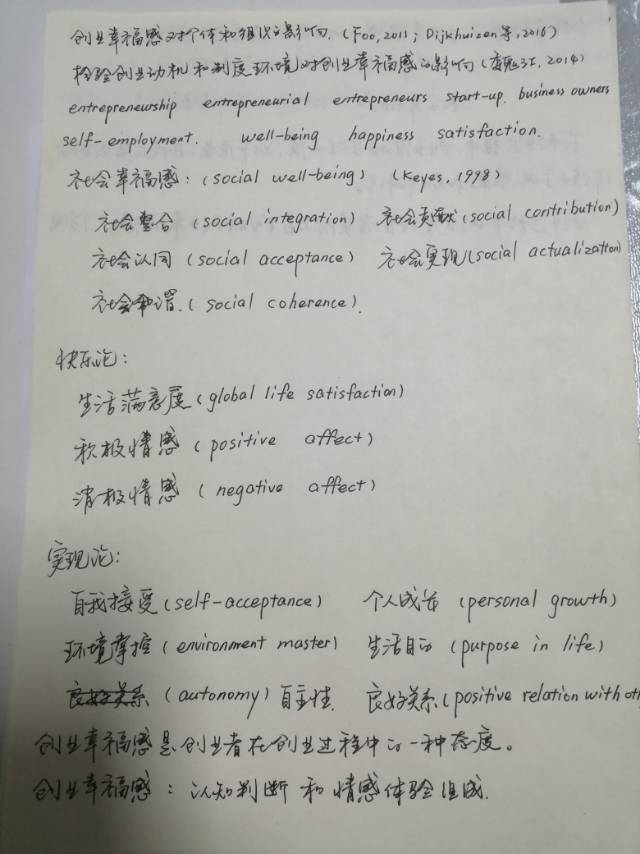 创业幸福感对个体和组织的影响.(Foo,2011;Dijkhuizen等,2016)
检验创业动机和制度环境对创业幸福感的影响(魏江,2014)
entrepreneurship entrepreneurial entrepreneurs start-up. business owners
self-employment. well-being happiness satisfaction.
社会幸福感:(social well-being) (Keyes,1998)
社会整合(social integration) 社会贡献(social contribution)
社会认同(social acceptance) 社会实现(social actualization)
社会和谐.(social coherence).
快乐论:
生活满意度(global life satisfaction)
积极情感(positive affect)
消极情感(negative affect)
实现论:
自我接受(self-acceptance) 个人成长(personal growth)
环境掌控(environment master) 生活目的(purpose in life)
(autonomy)自主性. 良好关系(positive relation with oth
创业幸福感是创业者在创业过程中的一种态度。
创业幸福感:认知判断和情感体验组成.